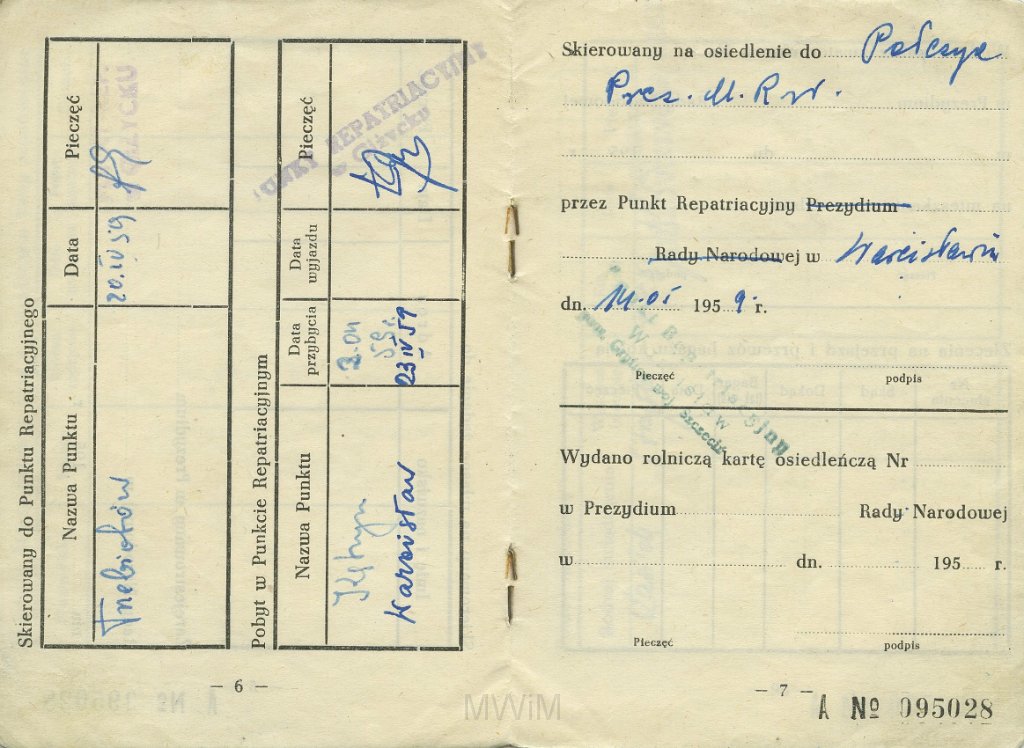 Skierowany do Punktu Repatriacyjnego
Nazwa Punktu
Data
Pieczęć
Trzebiatów
20.IV 59
Pobyt w Punkcie Repatriacyjnym
Nazwa Punktu
Data przybycia
Data wyjazdu
Pieczęć
59
Warcisław
23 IV 59
PUNKT REPATRIACYJNY
w Giżycku
— 6 —
Skierowany na osiedlenie do Połczyn
Prez. M. R. N.
przez Punkt Repatriacyjny Prezydium
Rady Narodowej w Warcisławiu
dn. 14.05 1959 r.
Pieczęć
podpis
Wydano rolniczą kartę osiedleńczą Nr
w Prezydium Rady Narodowej
w dn. 195 r.
Pieczęć
podpis
— 7 —
A № 095028
MWiM